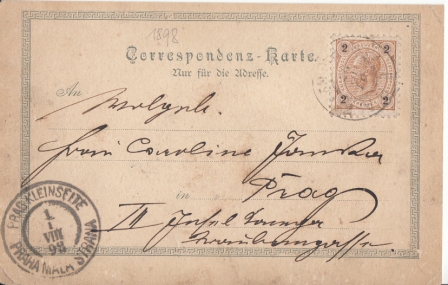 1898
Correspondenz-Karte.
Nur für die Adresse.
2 2
2 2
An
Wolgeb.
Frau Caroline
in Prag
III Insel
PRAG KLEINSEITE
1
VIII
98
PRAHA MALÁ STRANA